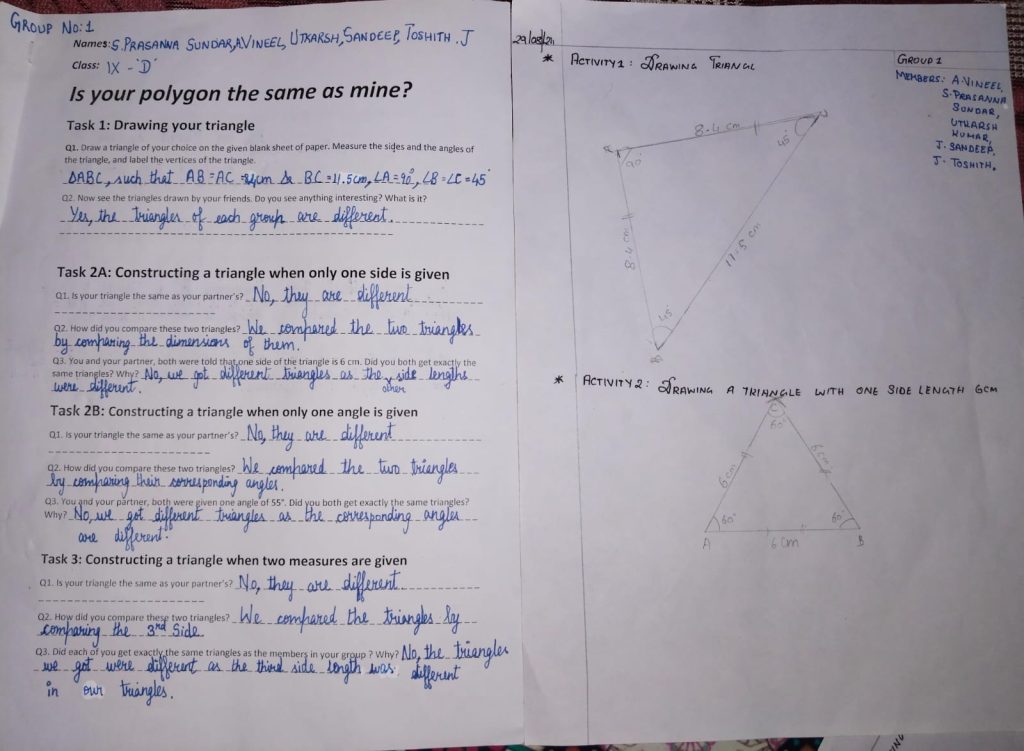 GROUP NO: 1
Names: S. PRASANNA SUNDAR, A VINEEL, UTKARSH, SANDEEP, TOSHITH . J
Class: IX - 'D'
Is your polygon the same as mine?
Task 1: Drawing your triangle
Q1. Draw a triangle of your choice on the given blank sheet of paper. Measure the sides and the angles of
the triangle, and label the vertices of the triangle.
ΔABC, such that AB = AC = 8.4cm & BC = 11.5cm, ∠A = 90°, ∠B = ∠C = 45°
Q2. Now see the triangles drawn by your friends. Do you see anything interesting? What is it?
Yes, the triangles of each group are different.
Task 2A: Constructing a triangle when only one side is given
Q1. Is your triangle the same as your partner's? No, they are different
Q2. How did you compare these two triangles? We compared the two triangles
by comparing the dimensions of them.
Q3. You and your partner, both were told that one side of the triangle is 6 cm. Did you both get exactly the
same triangles? Why? No, we got different triangles as the other side lengths
were different.
Task 2B: Constructing a triangle when only one angle is given
Q1. Is your triangle the same as your partner's? No, they are different
Q2. How did you compare these two triangles? We compared the two triangles
by comparing their corresponding angles.
Q3. You and your partner, both were given one angle of 55°. Did you both get exactly the same triangles?
Why? No, we got different triangles as the corresponding angles
are different.
Task 3: Constructing a triangle when two measures are given
Q1. Is your triangle the same as your partner's? No, they are different
Q2. How did you compare these two triangles? We compared the triangles by
comparing the 3rd Side
Q3. Did each of you get exactly the same triangles as the members in your group ? Why? No, the triangles
we got were different as the third side length was different
in our triangles.
29/08/24
* ACTIVITY 1: DRAWING TRIANGL
GROUP 1
MEMBERS: A. VINEEL,
S. PRASANNA
SUNDAR,
UTKARSH
KUMAR,
J. SANDEEP,
J. TOSHITH.
8.4 cm
90°
45°
8.4 cm
11.5 cm
45°
B
* ACTIVITY 2: DRAWING A TRIANGLE WITH ONE SIDE LENGTH 6CM
C
60°
6cm
6cm
60°
60°
A
6 cm
B